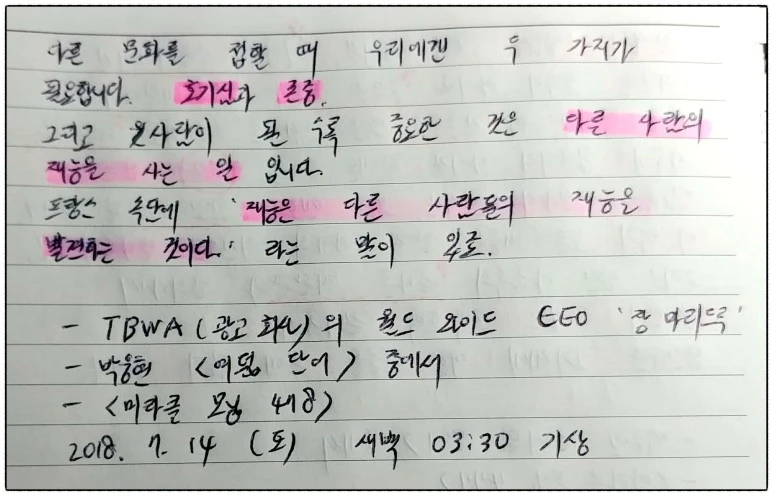 다른 문화를 접할 때 우리에겐 두 가지가
필요합니다. 호기심과 존중.
그리고 윗사람이 될 수록 중요한 것은 다른 사람의
재능을 사는 일 입니다.
프랑스 속담에 '재능은 다른 사람들의 재능을
발견하는 것이다.' 라는 말이 있죠.
- TBWA (광고 회사)의 월드 와이드 CEO '장 마리 드루'
- 박웅현 <여덟 단어> 중에서
- <미라클 모닝 478>
2018. 7. 14 (토) 새벽 03:30 기상